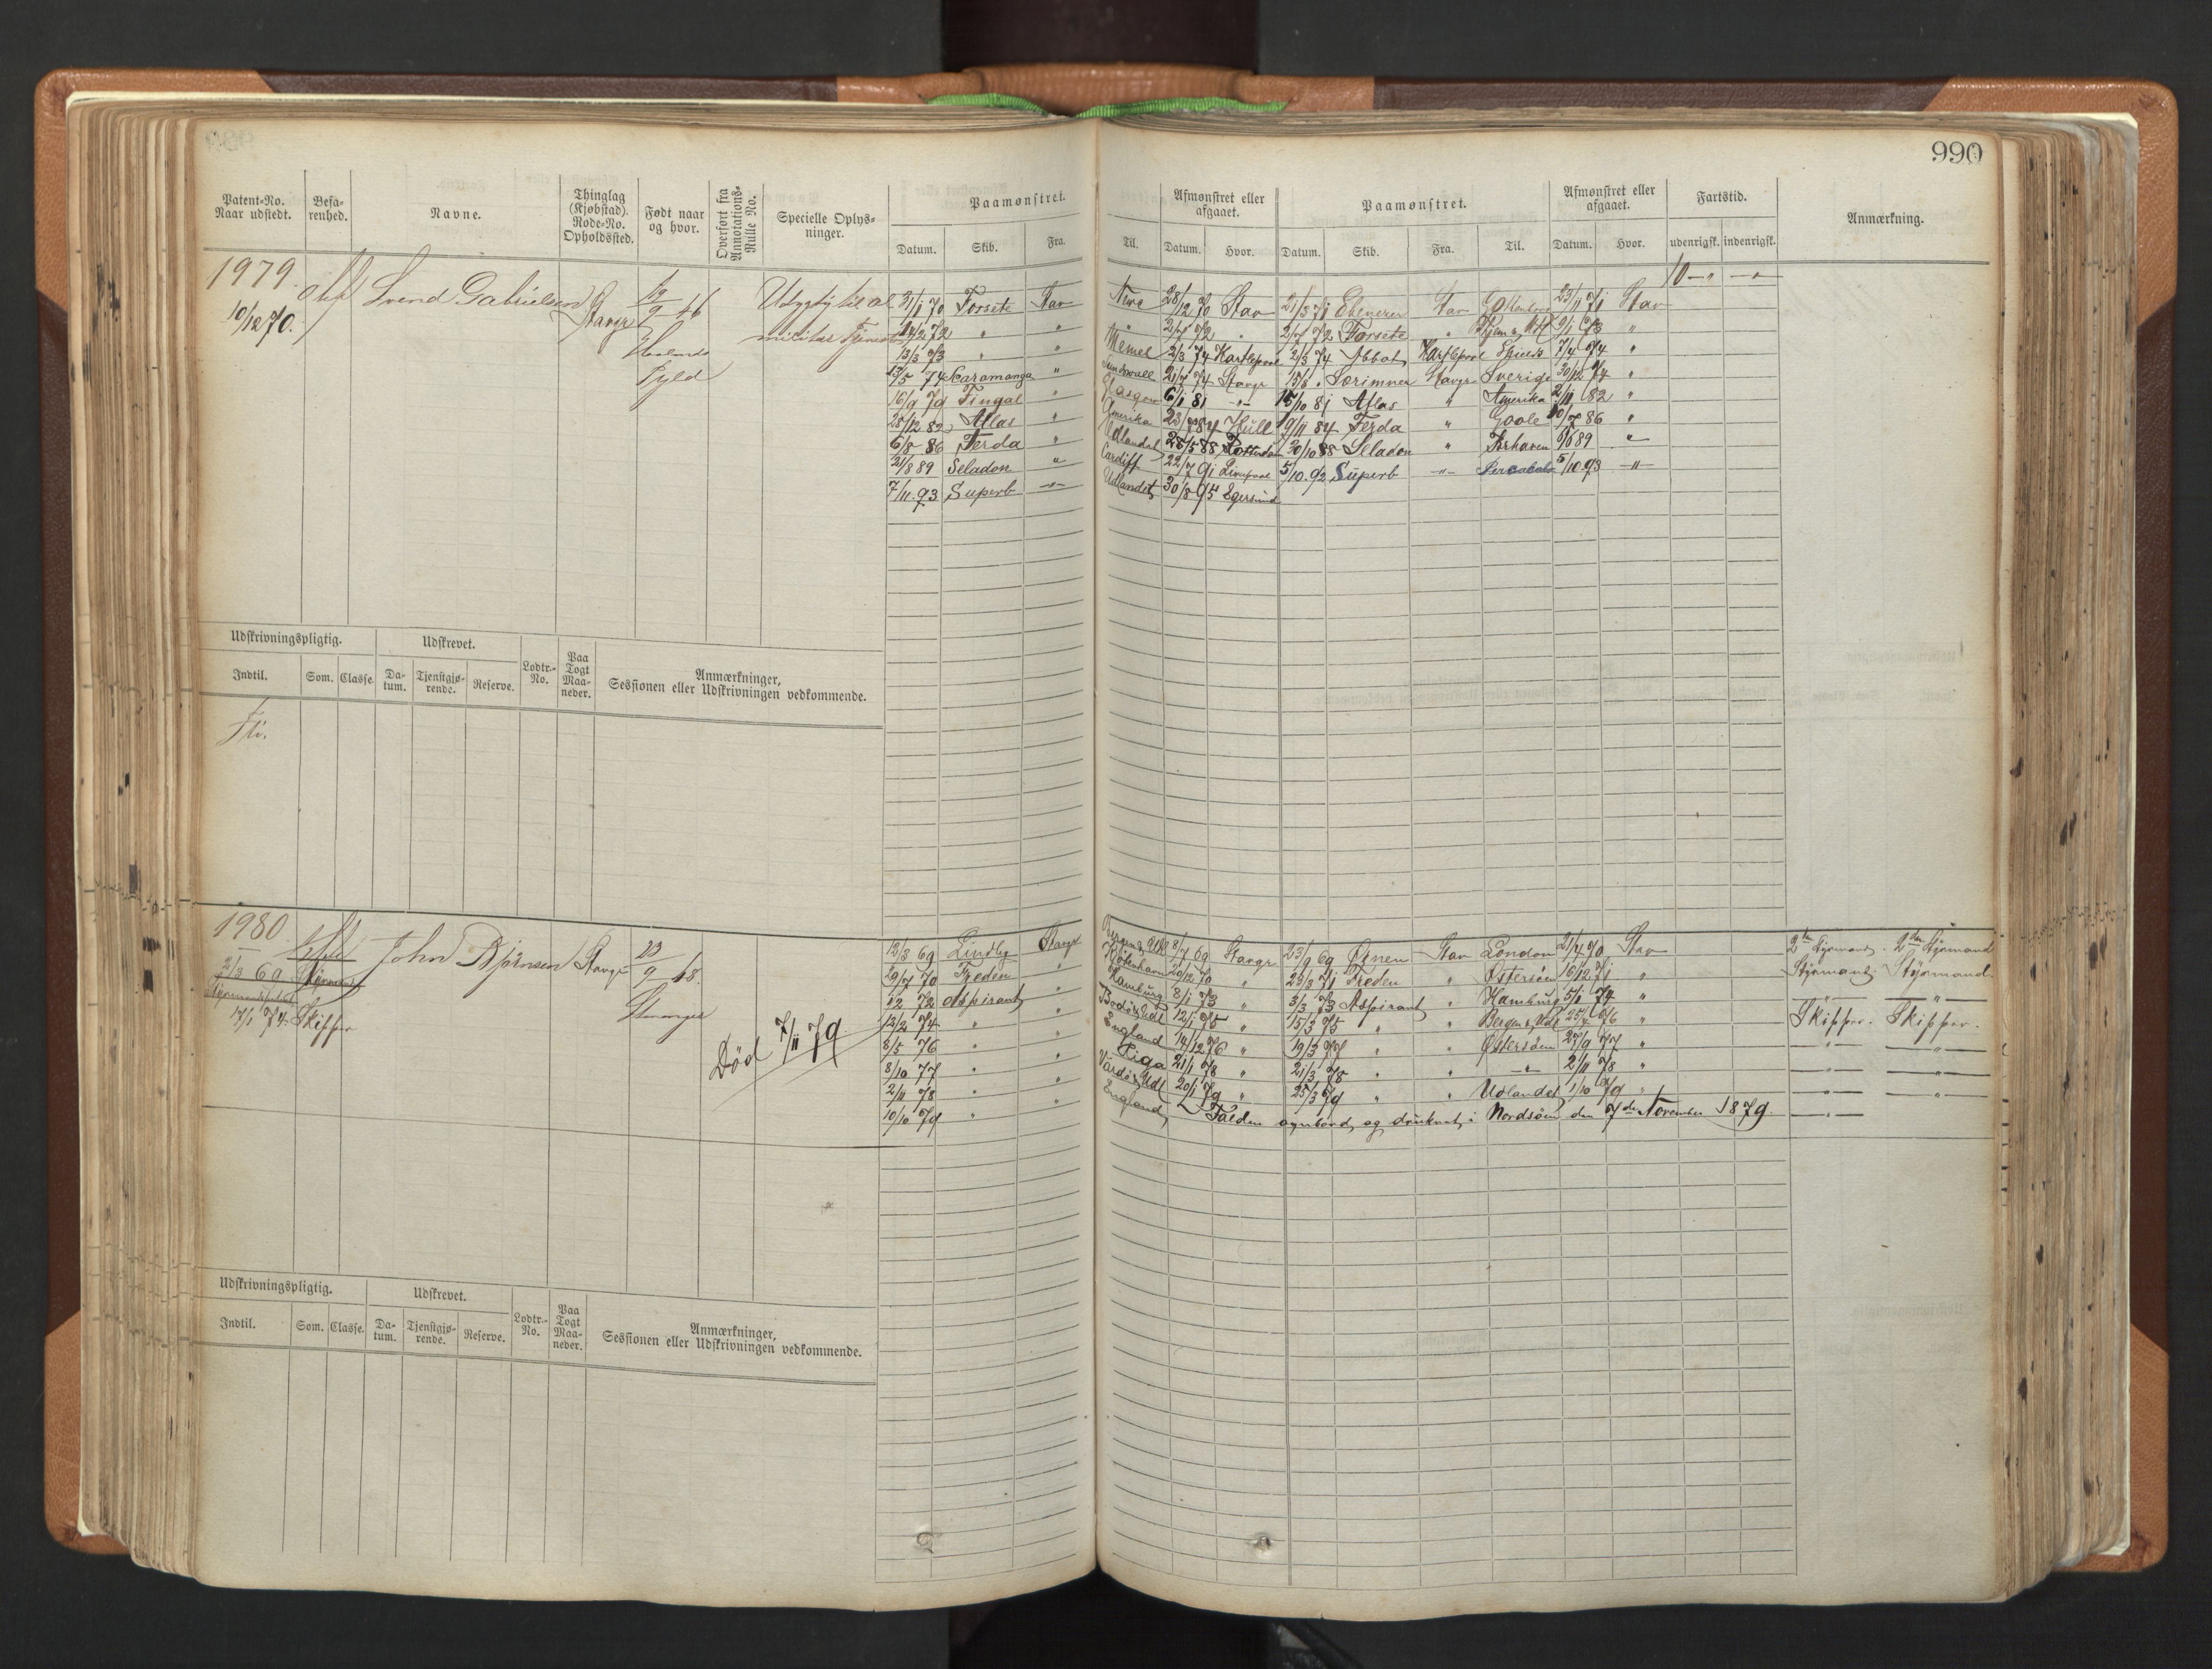 990
Patent-No. Naar udstedt.
Befarenhed.
Navne.
Thinglag (Kjøbstad). Rode-No. Opholdssted.
Født naar og hvor.
Overført fra Annotations-Rulle No.
Specielle Oplysninger.
Paamønstret.
Datum. Skib. Fra. Til.
Afmønstret eller afgaaet.
Datum. Hvor.
Paamønstret.
Datum. Skib. Fra. Til.
Afmønstret eller afgaaet.
Datum. Hvor.
Fartstid.
udenrigsk. indenrigsk.
Anmærkning.
1979
10/12 70.
Svend Gabrielsen
Stavgr
19/9 46
Fyld
militær Tjeneste
21/1 70 Forsete Stav 28/12 70 Stav 21/3 71 Ebenezer Stav 23/11 71 Stav
14/2 72 " " " 2/7 72 " 2/7 72 Forsete " 2/1 73 "
13/3 73 " " Memel 2/3 74 Hartlepool 2/3 74 Abbot Hartlepool 7/4 74 "
13/5 74 Scaramanga " Sundsvall 21/7 74 Stavgr 15/8 " Særimner Stavgr Sverige 30/12 74 "
16/9 79 Fingal " Glasgow 6/1 81 -"- 15/10 81 Atlas " Amerika 2/11 82 "
28/12 82 Atlas " Amerika 23/7 84 Hull 19/11 84 Ferda " Goole 10/7 86 "
6/8 86 Ferda " Udlandet 28/5 88 Rotterdam 30/10 88 Seladon " 6/6 89 "
21/8 89 Seladon " Cardiff 22/7 91 Liverpool 5/10.92 Superb -"- 5/10.93 -"-
7/11.93 Superb -"- Udlandet 30/8 95 Egersund
Udskrivningspligtig.
Udskrevet.
Indtil. Som. Classe. Datum. Tjenstgjørende. Reserve. Lodtr.-No. Paa Togt Maaneder.
Anmærkninger, Sessionen eller Udskrivningen vedkommende.
1980
2/3 69 Styrmand
17/1 74 Skipper
John Bjørnsen
Stavgr
23/9 48.
Død 7/11 79
12/3 69 Lindby Stavgr Bergen & Udl 8/7 69 Stavgr 23/9 69 Ørnen Stav London 21/4 70 Stav 2den Styrmand. 2den Styrmand
29/7 70 Freden " Kjøbenhavn 20/12 70 " 23/3 71 Freden " Østersøen 16/12 71 " Styrmand. Styrmand
72 Aspirant " Hamburg 8/1 73 " 3/3 73 Aspirant " Hamburg 5/1 74 " -"- -"-
13/2 74 " " Bodø & Udl 12/1 75 " 15/3 75 " " Bergen & Udl " Skipper. Skipper.
8/5 76 " " England 14/12 76 " 19/3 77 " " Østersøen 27/9 77 " -"- -"-
8/10 77 " " Riga 21/1 78 " 21/3 78 " " -"- 2/11 78 " -"- -"-
2/11 78 " " Vardø & Udl 20/1 79 " 25/3 79 " " Udlandet 1/10 79 " -"- -"-
10/10 79 " " England, Falden overbord og druknet i Nordsøen den 7de November 1879. -"-
Udskrivningspligtig.
Udskrevet.
Indtil. Som. Classe. Datum. Tjenstgjørende. Reserve. Lodtr.-No. Paa Togt Maaneder.
Anmærkninger, Sessionen eller Udskrivningen vedkommende.